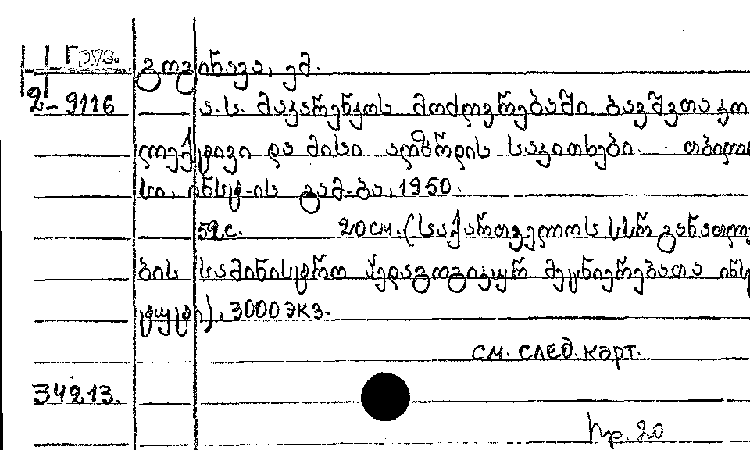 Груз.
გოგინავა, ემ.
2-9116
ა.ს. მაკარენკოს მოძღვრებაში ბავშვთა კო
ლექტივი და მისი აღზრდის საკითხები. თბილი
სი, ინსტ-ის გამ-ბა, 1950.
52с. 20см. (საქართველოს სსრ განათლე
ბის სამინისტრო პედაგოგიკურ მეცნიერებათა ინს
ტიტუტი). 3000 экз.
см. след. карт.
34213.
пр. 20